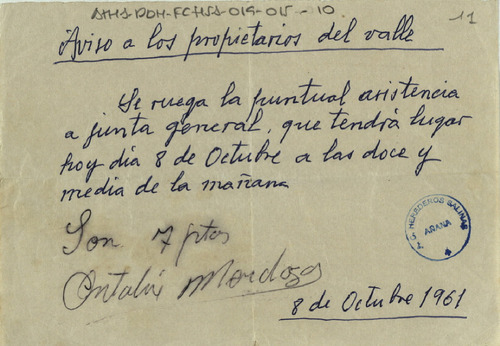 ATHA-DDH-FCHSA-019-015--10
11
Aviso a los propietarios del valle
Se ruega la puntual asistencia
a junta general, que tendrá lugar
hoy día 8 de Octubre a las doce y
media de la mañana
Son 7 ptas
Mendoza
HEREDEROS SALINAS
ARANA
8 de Octubre 1961